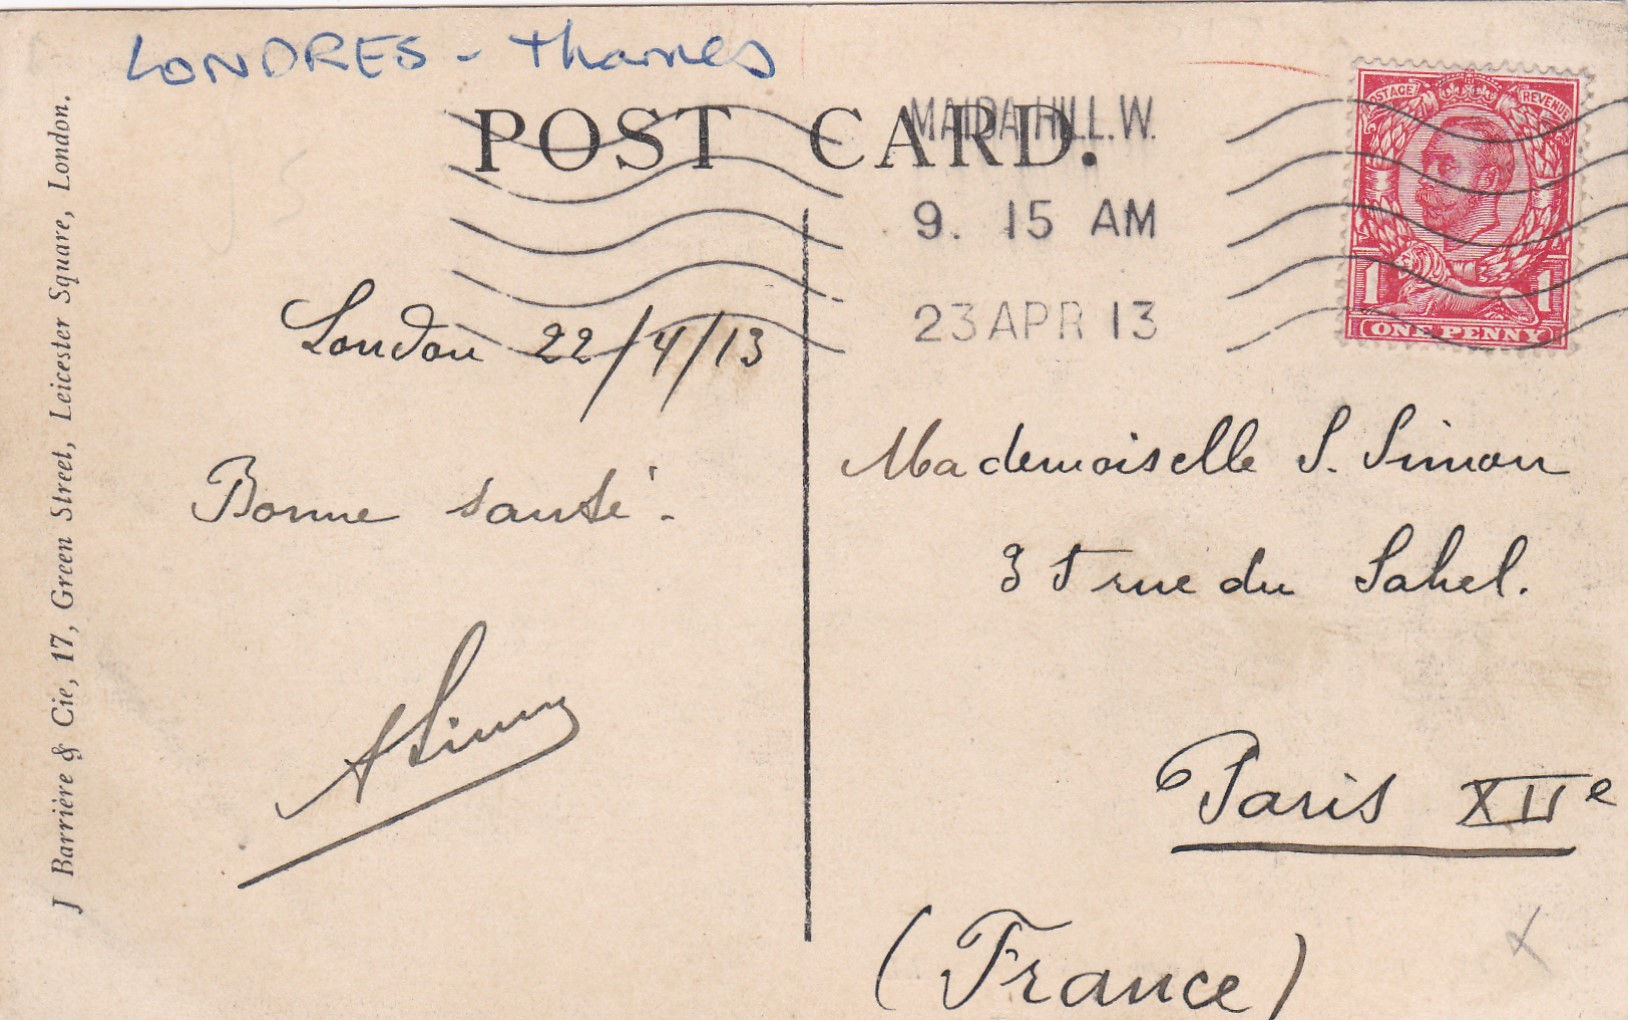 LONDRES - Thames
POST CARD.
MAIDA HILL.W.
9. 15 AM
23 APR 13
POSTAGE REVENUE
1 1
ONE PENNY
J Barrière & Cie, 17, Green Street, Leicester Square, London.
London 22/4/13
Bonne santé.
ASimon
Mademoiselle S. Simon
rue du Sahel.
Paris XIIe
(France)